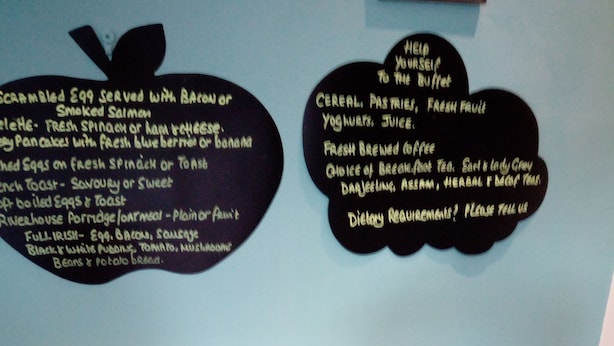 SCRAMBLED EGG SERVED WITH BACON OR
SMOKED SALMON
FRESH SPINACH OR HAM & CHEESE.
PANCAKES WITH FRESH BLUEBERRIES OR BANANA
EGGS ON FRESH SPINACH OR TOAST
TOAST - SAVOURY OR SWEET
BOILED EGGS & TOAST
RIVERHOUSE PORRIDGE/OATMEAL - PLAIN OR FRUIT
FULL IRISH - EGG, BACON, SAUSAGE
BLACK & WHITE PUDDING, TOMATO, MUSHROOMS
BEANS & POTATO BREAD.
HELP
YOURSELF
TO THE BUFFET
CEREAL, PASTRIES, FRESH FRUIT
YOGHURTS, JUICE.
FRESH BREWED COFFEE
CHOICE OF BREAKFAST TEA. EARL & LADY GREY
DARJEELING, ASSAM, HERBAL & DECAF TEAS.
DIETARY REQUIREMENTS? PLEASE TELL US